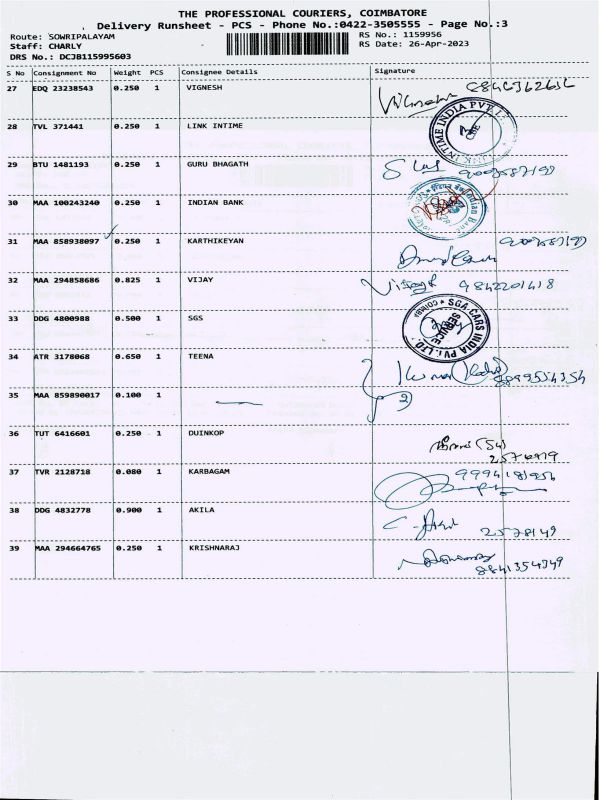 THE PROFESSIONAL COURIERS, COIMBATORE
Delivery Runsheet - PCS - Phone No.:0422-3505555 - Page No.:3
Route: SOWRIPALAYAM RS No.: 1159956
Staff: CHARLY RS Date: 26-Apr-2023
DRS No.: DCJB115995603
S No Consignment No Weight PCS Consignee Details Signature
27 EDQ 23238543 0.250 1 VIGNESH
28 TVL 371441 0.250 1 LINK INTIME
LINK INTIME INDIA PVT LTD
29 BTU 1481193 0.250 1 GURU BHAGATH
30 MAA 100243240 0.250 1 INDIAN BANK
Indian Bank
31 MAA 858938097 0.250 1 KARTHIKEYAN
32 MAA 294858686 0.825 1 VIJAY 9842201418
33 DDG 4800988 0.500 1 SGS
SGA CARS INDIA PVT. LTD. * COIMB
SERVICE
34 ATR 3178068 0.650 1 TEENA 8899554354
35 MAA 859890017 0.100 1
36 TUT 6416601 0.250 1 DUINKOP
2576979
37 TVR 2128718 0.080 1 KARBAGAM
38 DDG 4832778 0.900 1 AKILA
2578149
39 MAA 294664765 0.250 1 KRISHNARAJ
8841354349